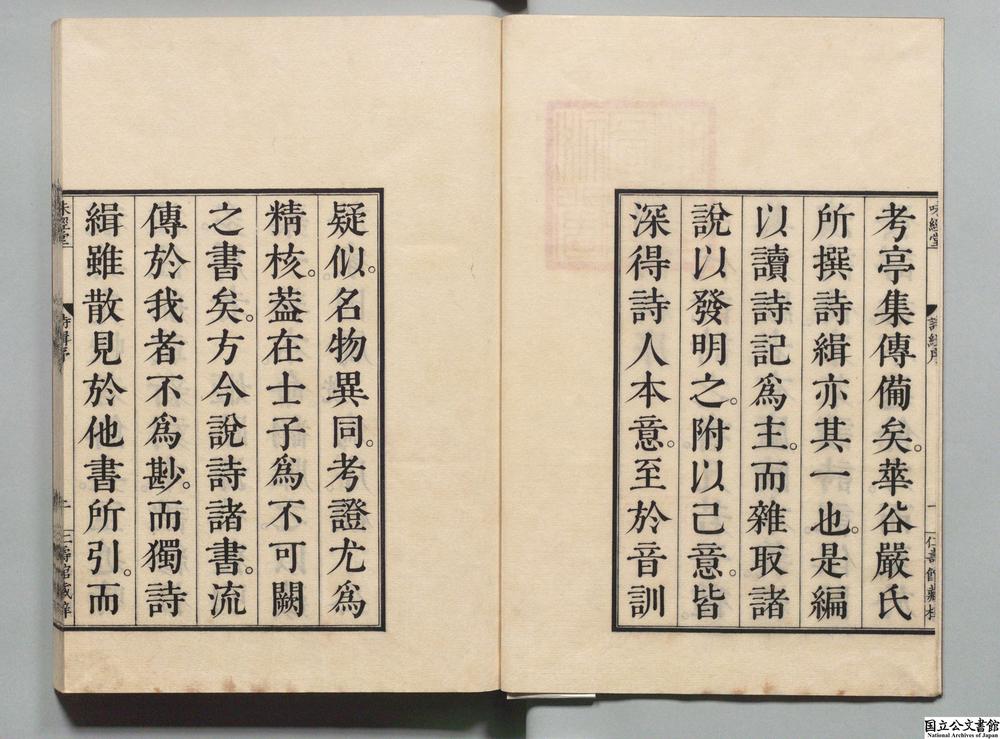 考亭集傳備矣。華谷嚴氏
所撰詩緝亦其一也。是編
以讀詩記爲主。而雜取諸
說以發明之。附以己意。皆
深得詩人本意。至於音訓
疑似。名物異同。考證尤爲
精核。葢在士子爲不可闕
之書矣。方今說詩諸書。流
傳於我者不爲尠。而獨詩
緝雖散見於他書所引。而
味經堂
詩緝序
一
味經堂
詩緝序
二
国立公文書館
National Archives of Japan